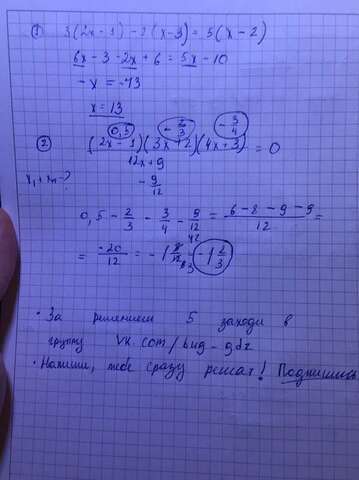 ① 3(2x - 1) - 2(x - 3) = 5(x - 2)
6x - 3 - 2x + 6 = 5x - 10
- x = -13
x = 13
0,5 - 2/3 - 3/4
② (2x - 1)(3x + 2)(4x + 3) = 0
12x + 9
x₁ + xₙ - ? - 9/12
0,5 - 2/3 - 3/4 - 9/12 = (6 - 8 - 9 - 9)/12 =
= -20/12 = - 1 8/12 - 1 2/3
• За решением 5 заходи в
группу vk.com/
• Напиши, тебе сразу решат! Подпишись